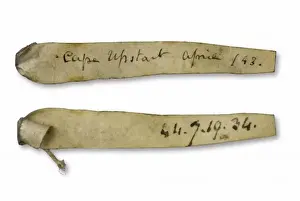 Cape Upstart Africa 143.
44.7.19.34.